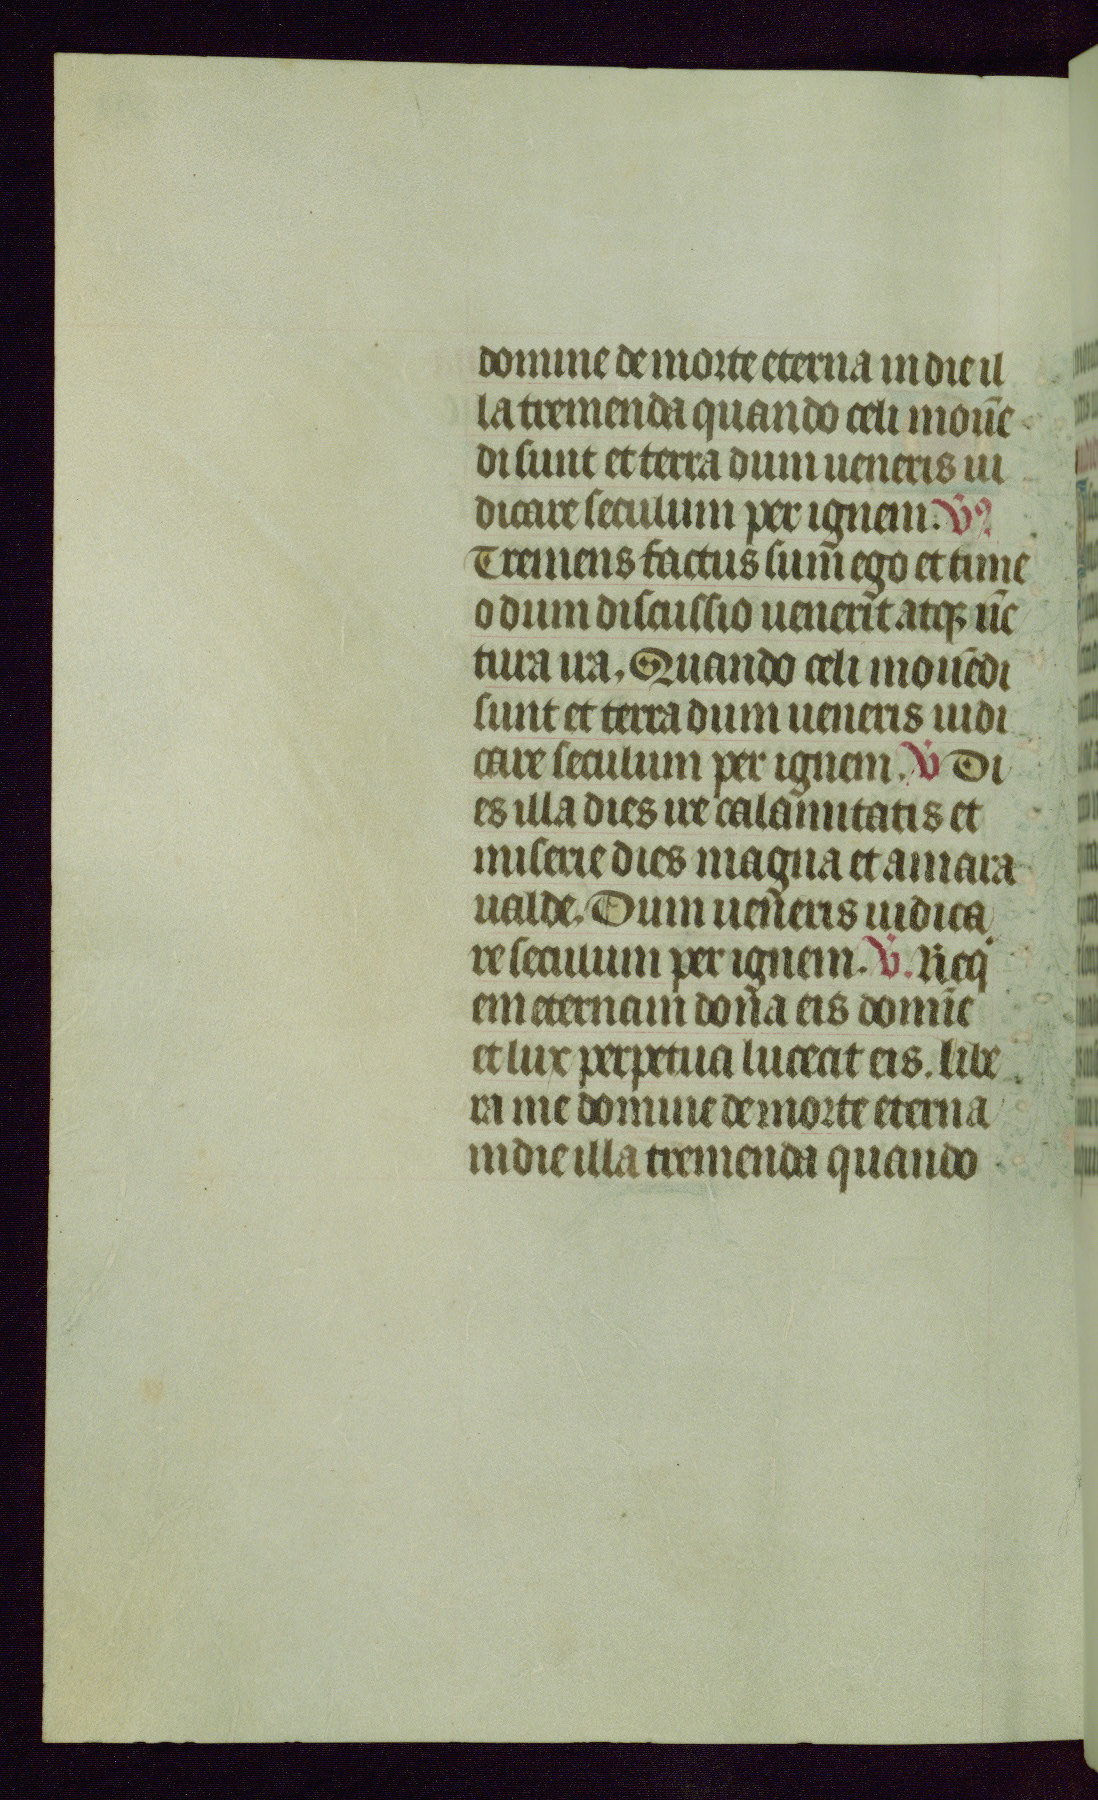 domine de morte eterna in die il
la tremenda quando celi mouē
di sunt et terra dum ueneris iu
dicare seculum per ignem. V̄
Tremens factus sum̄ ego et time
o dum discussio uenerīt atq; uē
tura ira. Quando celi mouēdi
sunt et terra dum ueneris iudi
care seculum per ignem. V̄ Di
es illa dies ire calamitatis et
miserie dies magna et amara
ualde. Dum uen̄eris iudica
re seculum per ignem. V̄. Req̇
em eternam don̄a eis domīe
et lux perpetua luceat eis. libe
ra me domine de morte eterna
in die illa tremenda quando